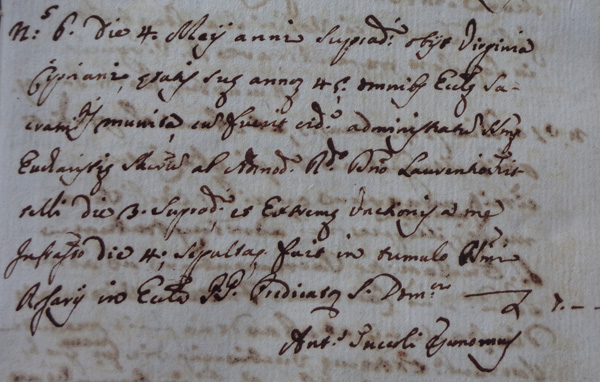 N.º 6. Die 4. Meÿ anni Suprad.ⁱ obijt Virginia
Cipriani, ętatis suę annoꝝ 45. omnibꝫ Eccłę Sa-
cramtis munita, cu fuerit eid.ⁱ administratu SSmę
Eucharistię Sacrū al Admod. R.do Dno Laurentio
selli die 3. Suprad. et Extremę Unctionis a me
Infracto die 4; sepultaq. fuit in tumulo SSmi
Rosarij in Eccła PP. Predicatoꝝ S. Dom.ci
Ant.s Succoli Economus